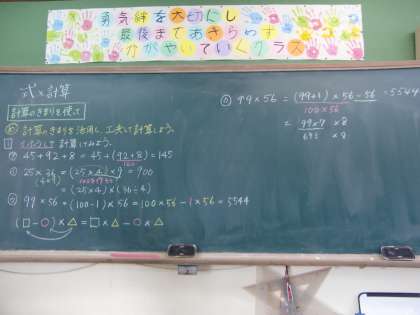 勇気絆を大切にし
最後まであきらめず
かがやいていくクラス
式と計算
計算のきまりを使って
め 計算のきまりを活用し、工夫して計算しよう。
① くふうして計算してみよう。
㋐ 45+92+8 = 45+(92+8)=145
100
㋑ 25×36 = (25×4)×9 = 900
(4×9)
= (25×4)×(36÷4)
㋒ 99×56 = (100-1)×56 = 100×56-1×56 = 5544
(□-○)×△=□×△-○×△
99×56 = (99+1)×56-56 = 5544
100×56
= 99×7 ×8